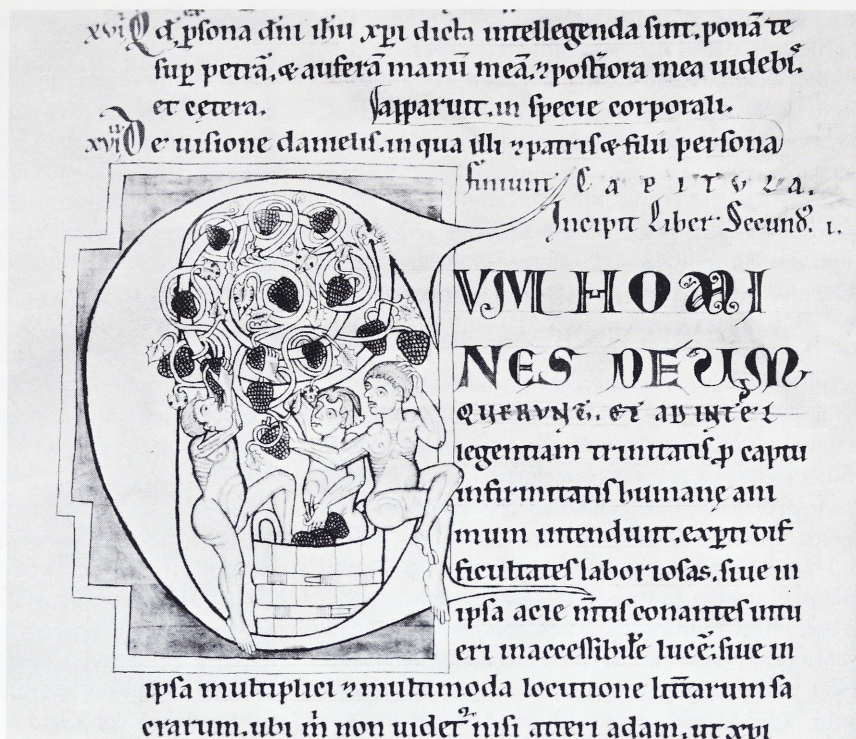 xvi Qđ psona dni ihu xpi dicta intellegenda sunt, ponā te
sup petrā, & auferā manū meā, ⁊ postiora mea uidebis,
et cętera. apparuit, in specie corporali.
xvii De uisione danielis, in qua illi ⁊ patris & filii persona
finiunt Capitula.
Incipit Liber Secund9. i.
CVM HOMI
NES DEUM
QUERUNT, ET AD INTEL
legentiam trinitatis p captu
infirmitatis humanę ani
mum intendunt, expti dif
ficultates laboriosas, siue in
ipsa acie mtis conantis intu
eri inaccessibile lucē; siue in
ipsa multiplici ⁊ multimoda locutione littarum sa
crarum, ubi m̄ non uidet nisi atteri adam, ut xpi